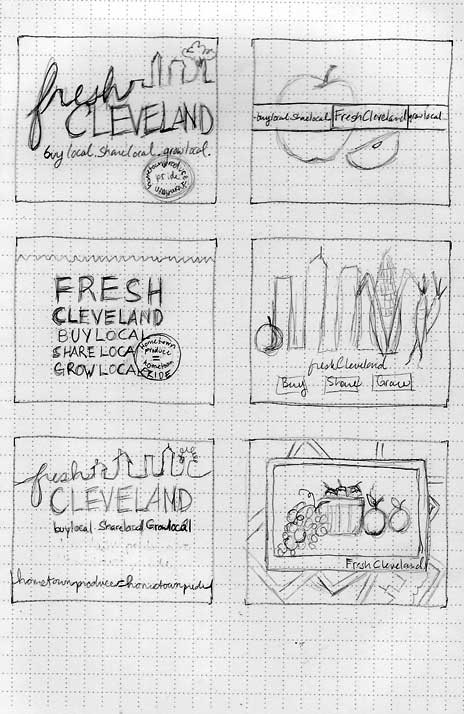 fresh
CLEVELAND
buy local. Share local. grow local.
hometown produce
pride
hometown
buy local. Share local.
FreshCleveland
grow local
FRESH
CLEVELAND
BUY LOCAL
SHARE LOCA
GROW LOCA
hometown
produce
=
hometown
PRIDE
freshCleveland
Buy Share Grow
fresh
CLEVELAND
buy local. Share local Grow local
hometown produce = hometown pride
FreshCleveland